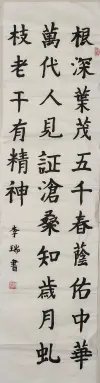 根深葉茂五千春蔭佑中華
萬代人見証滄桑知歲月虬
枝老干有精神
李瑞書